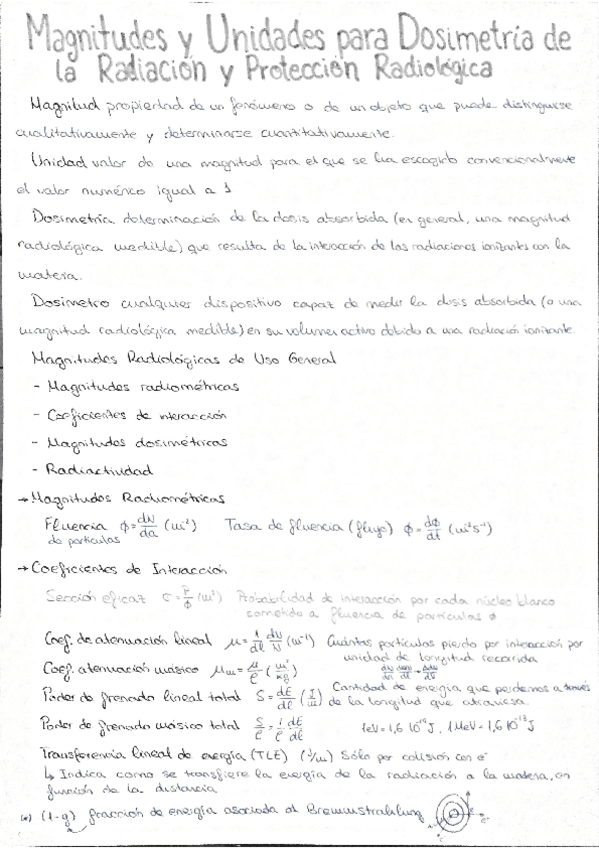 Magnitudes y Unidades para Dosimetría de
la Radiación y Protección Radiológica
Magnitud propiedad de un fenómeno o de un objeto que puede distinguirse
cualitativamente y determinarse cuantitativamente.
Unidad valor de una magnitud para el que se ha escogido convencionalmente
el valor numérico igual a 1
Dosimetría determinación de la dosis absorbida (en general, una magnitud
radiológica medible) que resulta de la interacción de las radiaciones ionizantes con la
materia.
Dosímetro cualquier dispositivo capaz de medir la dosis absorbida (o una
magnitud radiológica medible) en su volumen activo debido a una radiación ionizante.
Magnitudes Radiológicas de Uso General
- Magnitudes radiométricas
- Coeficientes de interacción
- Magnitudes dosimétricas
- Radiactividad
→ Magnitudes Radiométricas
Fluencia de partículas ϕ = dN/da (m⁻²) Tasa de fluencia (flujo) ϕ = dϕ/dt (m⁻²s⁻¹)
→ Coeficientes de Interacción
Sección eficaz σ = P/ϕ (m²) Probabilidad de interacción por cada núcleo blanco
sometido a fluencia de partículas ϕ
Coef. de atenuación lineal μ = 1/dl dN/N (m⁻¹) Cuántas partículas pierdo por interacción por
unidad de longitud recorrida
Coef. atenuación másico μm = μ/ρ (m²/kg)
Poder de frenado lineal total S = dE/dl (J/m) Cantidad de energía que perdemos a través
de la longitud que atraviesa.
Poder de frenado másico total S/ρ = 1/ρ · dE/dl 1eV = 1,6 10⁻¹⁹ J, 1MeV = 1,6 10⁻¹³ J
Transferencia lineal de energía (TLE) (J/m) Sólo por colisión con e⁻
↳ Indica como se transfiere la energía de la radiación a la materia, en
función de la distancia
(*) (1-g) fracción de energía asociada al Bremmstrahlung